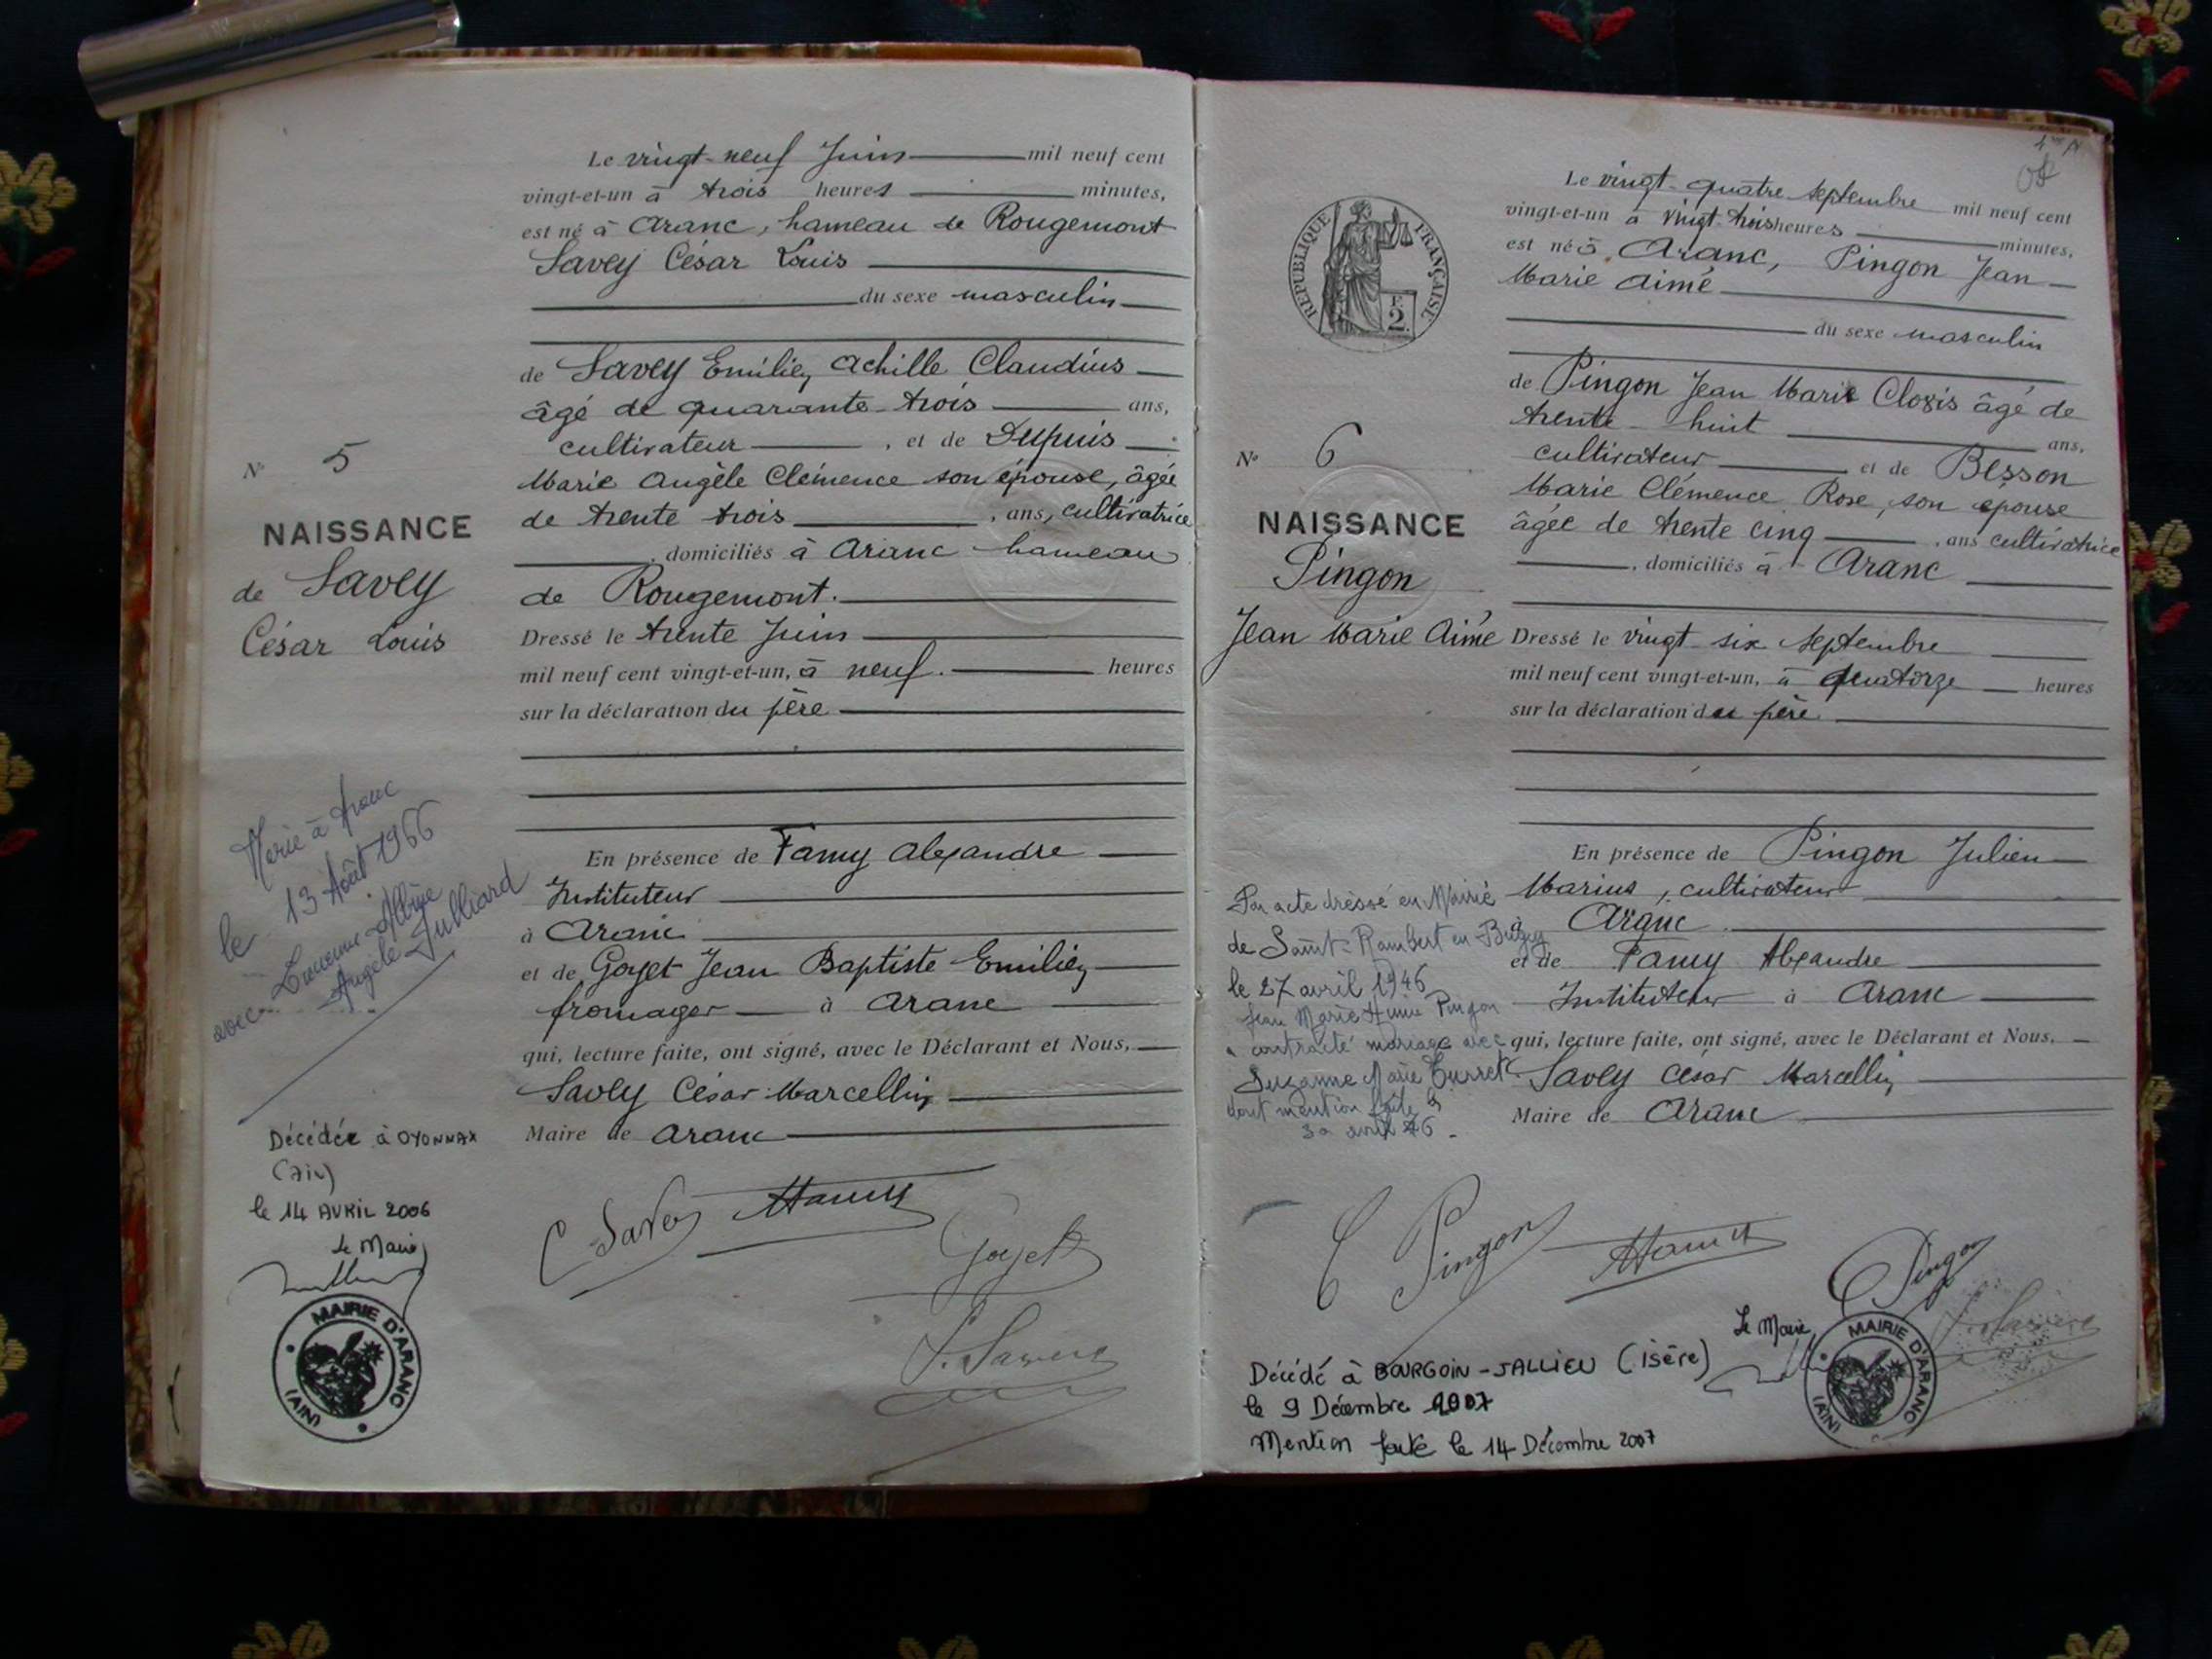 N° 5
NAISSANCE
de Savey
César Louis
Marié à Aranc
le 13 Août 1966
avec
Albine
Angèle Julliard
Décédée à OYONNAX
(Ain)
le 14 AVRIL 2006
Le Maire
MAIRIE D'ARANC
(AIN)
Le vingt-neuf Juin mil neuf cent
vingt-et-un à trois heures minutes,
est né à Aranc, hameau de Rougemont
Savey César Louis
du sexe masculin
de Savey Emilien Achille Claudius
âgé de quarante-trois ans,
cultivateur, et de Dupuis
Marie Angèle Clémence son épouse, âgée
de trente trois, ans, cultivatrice
, domiciliés à Aranc hameau
de Rougemont.
Dressé le trente Juin
mil neuf cent vingt-et-un, à neuf. heures
sur la déclaration du père
En présence de Famy Alexandre
Instituteur
à Aranc
et de Goyet Jean Baptiste Emilien
fromager à Aranc
qui, lecture faite, ont signé, avec le Déclarant et Nous,
Savey César Marcellin
Maire de Aranc
C Savey
AFamy
Goyet
OF
REPUBLIQUE FRANÇAISE
F.
2.
N° 6
NAISSANCE
Pingon
Jean Marie Aimé
Par acte dressé en Mairie
de Saint-Rambert en Bugey
le 27 avril 1946
Jean Marie Aimé Pingon
a contracté mariage avec
Suzanne Marie
dont mention faite le
30 avril 46.
Le vingt-quatre Septembre mil neuf cent
vingt-et-un à vingt-trois heures minutes,
est né à Aranc, Pingon Jean
Marie Aimé
du sexe masculin
de Pingon Jean Marie Clovis âgé de
trente-huit ans,
cultivateur et de Besson
Marie Clémence Rose, son épouse
âgée de trente cinq, ans cultivatrice
, domiciliés à Aranc
Dressé le vingt six Septembre
mil neuf cent vingt-et-un, à quatorze heures
sur la déclaration du père
En présence de Pingon Julien
Marius, cultivateur
à Aranc
et de Famy Alexandre
Instituteur à Aranc
qui, lecture faite, ont signé, avec le Déclarant et Nous,
Savey César Marcellin
Maire de Aranc
C Pingon
AFamy
Pingon
Décédé à BOURGOIN-JALLIEU (Isère)
le 9 Décembre 2007
Mention faite le 14 Décembre 2007
Le Maire
MAIRIE D'ARANC
(AIN)